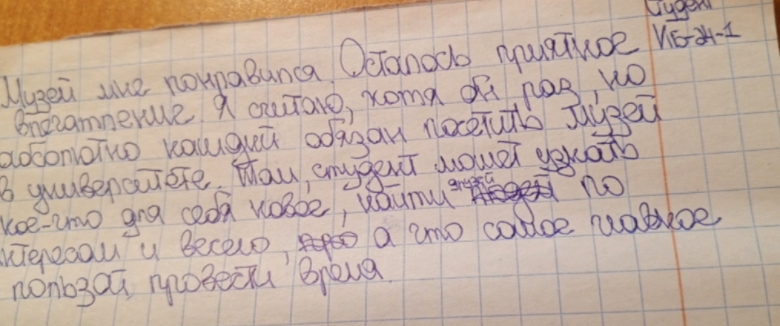 Студент
ИБ-24-1
Музей мне понравился. Осталось приятное
впечатление. Я считаю, хотя бы раз, но
абсолютно каждый обязан посетить музей
в университете. Там, студент может узнать
кое-что для себя новое, найти друзей по
нтересам и весело, а что самое главное
пользой, провести время.